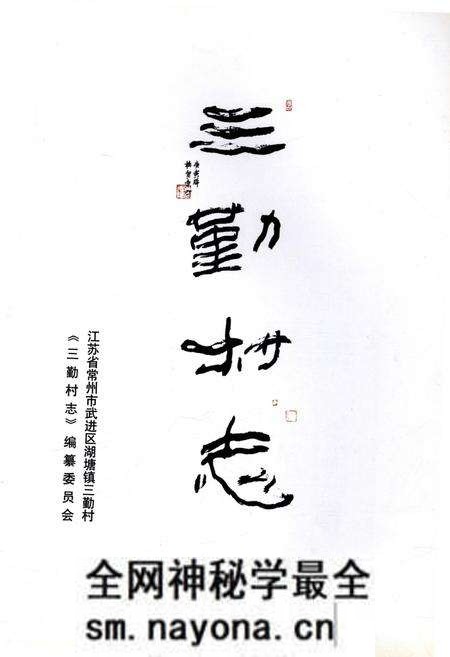 三勤村志
江苏省常州市武进区湖塘镇三勤村
《三勤村志》编纂委员会
全网神秘学最全
sm.nayona.cn